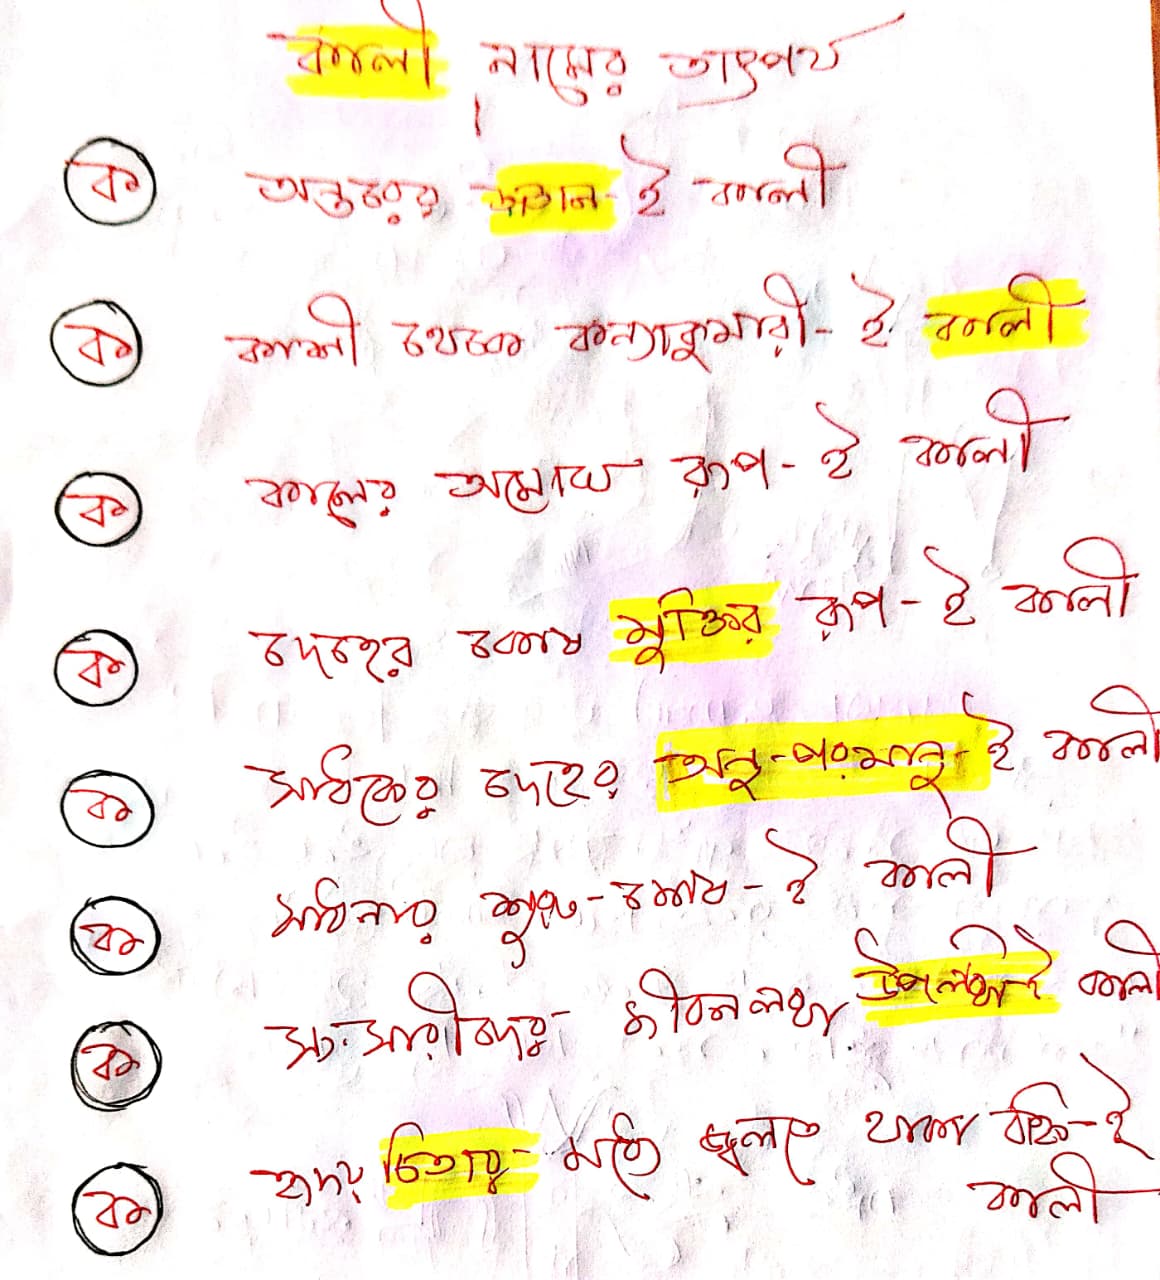 কালী নামের তাৎপর্য
ক অন্তরের জ্ঞান-ই কালী
ক কাশী থেকে কন্যাকুমারী-ই কালী
ক কালের অমোঘ রূপ-ই কালী
ক দেহের কোষ মুক্তির রূপ-ই কালী
ক সাধকের দেহের অনু-পরমানু-ই কালী
ক সাধনার শুরু-শেষ-ই কালী
ক সংসারীদের জীবনলব্ধ উপলব্ধি-ই কালী
ক হৃদয় চিতার মধ্যে জ্বলতে থাকা বহ্নি-ই
কালী